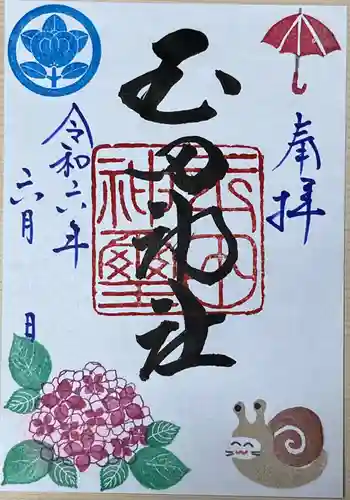 奉拝
玉田神社
玉田神社璽
令和六年
六月 日